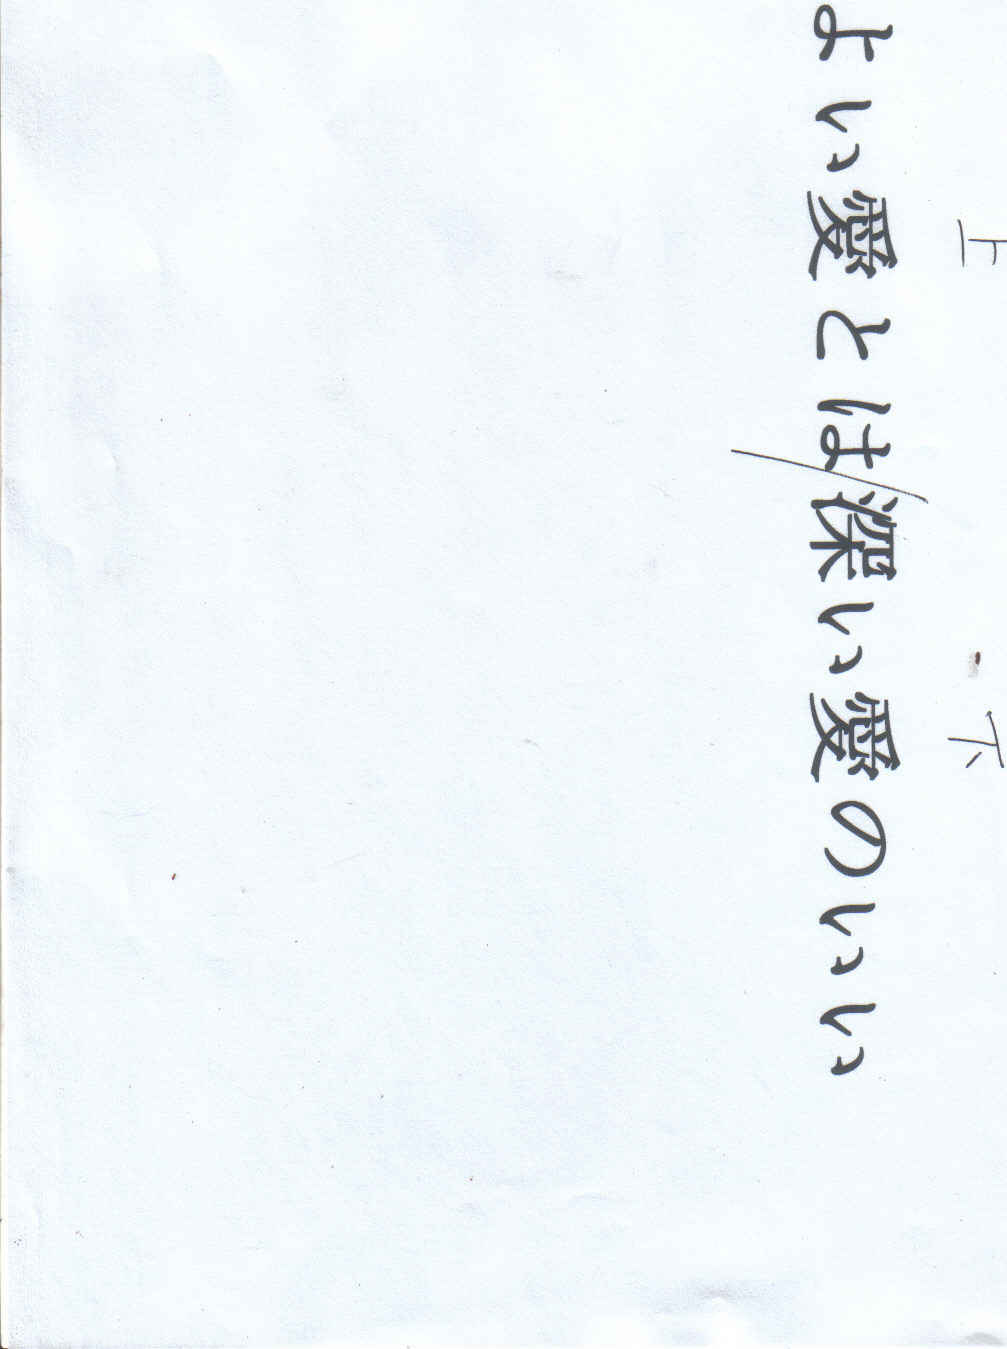 上 下
よい愛とは/深い愛のいい